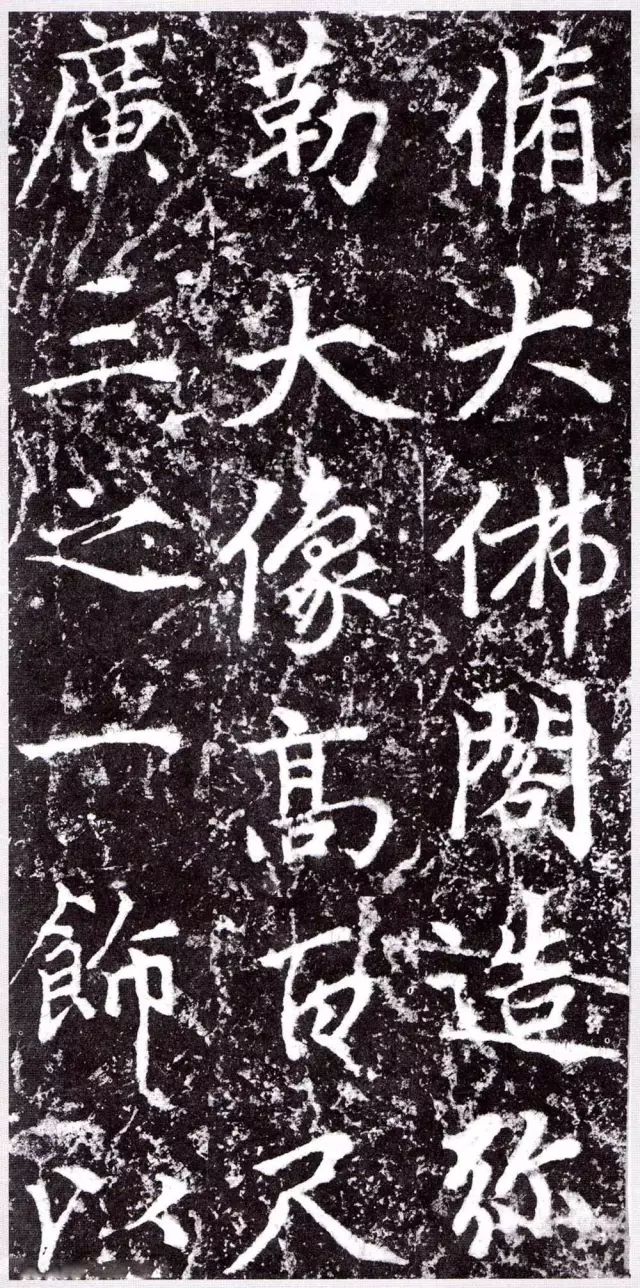 脩大佛閣造弥
勒大像高百尺
廣三之一飾以